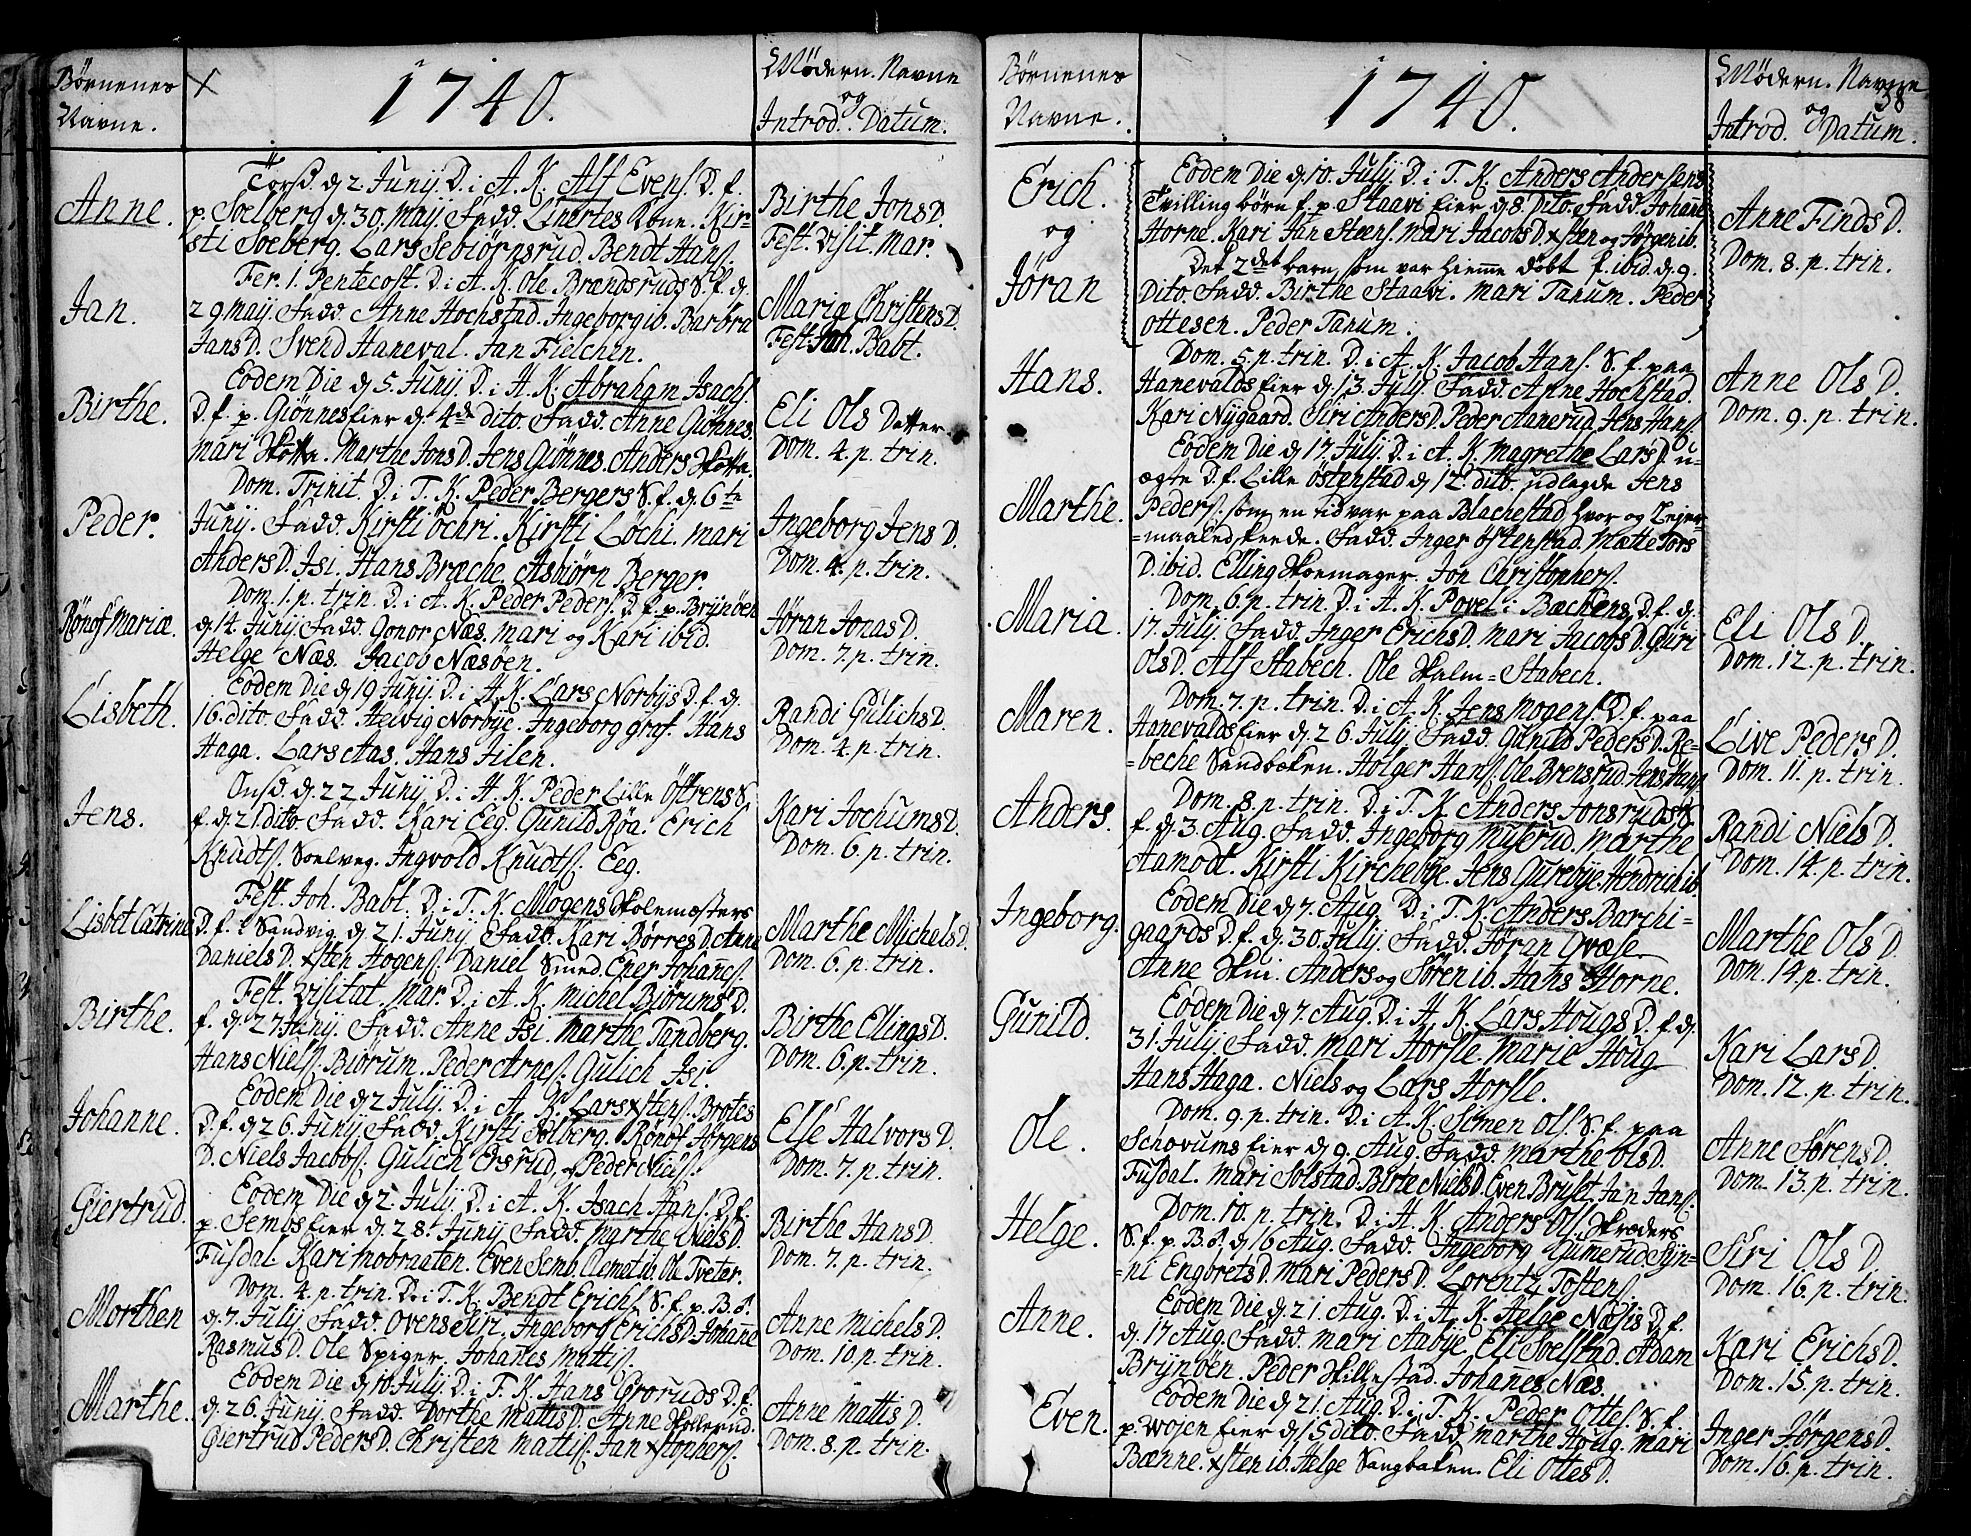 Børnenes
Navne.
1740.
Mødern. Navne
og
Introd. Datum.
Anne.
Torsd. d. 2 Junij. D. i A. K. Alf Evens. D. f.
p. Solberg d. 30. Maij. Fadd. Linertes Kone. Kir-
sti Soeberg. Lars Sebiørnsrud. Bendt Hans.
Birthe Jons D.
Fest. Visit. Mar.
Jan.
Fer. 1. Pentecost. D. i A. K. Ole Brændsruds S. f. d.
29. Maij. Fadd. Anne Hochstad. Ingeborg ib. Barbra
Jans D. Svend Haneval. Jan Fielchen.
Maria Christens D.
Fest. Joh. Babt.
Birthe.
Eodem Die d. 5. Junij. D. i A. K. Abraham Isachs.
D. f. p. Giønnes Eier d. 4de dito. Fadd. Anne Giønnes.
Mari Skotta. Marthe Jons D. Jens Giønnes. Anders Skotta.
Eli Ols Datter.
Dom. 4. p. trin.
Peder.
Dom. Trinit. D. i T. K. Peder Bergers S. f. d. 6te
Junij. Fadd. Kirsti Ochri. Kirsti Løchi. Mari
Anders D. Isi. Hans Brache. Asbiørn Berger
Ingeborg Jens D.
Dom. 4. p. trin.
Rønof Mariæ.
Dom. 1. p. trin. D. i A. K. Peder Peders. D. f. p. Brijnøen
d. 14. Junij. Fadd. Gonor Næs. Mari og Kari ibid.
Helge Næs. Jacob Næsøen.
Jøran Jonas D.
Dom. 7. p. trin.
Lisbeth.
Eodem Die d. 19 Junij. D. i A. K. Lars Norbijs D. f. d.
16. dito. Fadd. Helvig Norbije. Ingeborg graf. Hans
Haga. Lars Aas. Hans Jilen.
Randi Gulichs D.
Dom. 4. p. trin.
Jens.
Onsd. d. 22 Junij. D. i A. K. Peder Lille Østrens S.
f. d. 21 dito. Fadd. Kari Eeg. Gunild Røa. Erich
Knuds. Soelveg. Ingvold Knudts. Eeg.
Kari Jochums D.
Dom. 6. p. trin.
Lisbet Catrine
Fest. Joh. Babt. D. i T. K. Mogens Skolemæsters
D. f. i Sandvig. d. 21. Junij Fadd. Kari Børres D. Anne
Daniels D. Xsten Aogens. Daniel Smed. Ener Johans.
Marthe Michels D.
Dom. 6. p. trin.
Birthe.
Fest. Visitat. Mar. D. i A. K. Michel Biørums D.
f. d. 27 Junij. Fadd. Anne Isi. Marthe Tandberg.
Hans Niels. Biørum. Peder Arnes. Gulich Isi.
Birthe Ellings D.
Dom. 6. p. trin.
Johanne.
Eodem Die d. 2 Julij. D. i A. K. Lars Xstens. Brotes
D. f. d. 26. Junij Fadd. Kirsti Solberg. Rønof Jørgens
D. Niels Jacobs. Gulich Ersrud, og Peder Niels.
Else Halvors D.
Dom. 7. p. trin.
Giertrud.
Eodem Die d. 2 Julij. D. i A. K. Isach Hans. D. f.
p. Sembs Eier d. 28. Junij Fadd. Marthe Niels D.
Fusdal. Kari Mobraaten. Even Semb. Clemet ib. Ole Tveter.
Birthe Hans D.
Dom. 7. p. trin.
Morthen
Dom. 4. p. trin. D. i T. K. Bendt Erichs. S. f. p. B. S.
d. 7. Julij. Fadd. Ovens Siri. Ingeborg Erichs D. Johanne
Rasmus D. Ole Spiger. Johanes Mattis.
Anne Michels D.
Dom. 10. p. trin.
Marthe.
Eodem Die d. 10. Julij. D. i T. K. Hans Groruds D. f.
d. 26. Junij. Fadd. Dorthe Mattis D. Anne Skollerud.
Giertrud Peders D. Christen Mattis. Jan Xstophers.
Anne Mattis D.
Dom. 8. p. trin.
Børnenes
Navne.
1740.
Mødern. Navne
58
og
Introd. Datum.
Erich.
og
Jøran
Eodem Die d. 10. Julij. D. i T. K. Anders Andersens
Tvilling børn f. p. Staavi Eier d. 8. Dito. Fadd. Johanne
Horne. Kari Jan Stæns. Mari Jacobs D. Xsten og Jørgen ib.
Det 2det barn, som var hiemme døbt f. ibid. d. 9.
Dito. Fadd. Birthe Staavi. Mari Tanum. Peder
Ottesen. Peder Tanum.
Anne Finds D.
Dom. 8. p. trin.
Hans.
Dom. 5. p. trin. D. i A. K. Jacob Hans. S. f. paa
Hanevalds Eier d. 13. Julij. Fadd. Anne Hochstad.
Kari Nijgaard. Siri Anders D. Peder Aanerud. Jens Hans.
Anne Ols D.
Dom. 9. p. trin.
Marthe.
Eodem Die d. 17. Julij. D. i A. K. Magrethe Lars D. u-
ægte D. f. Lille Østenstad d. 12. dito. udlagde Jens
Peders. som en tid var paa Blachestad hvor og Lejer-
=maaled skeede. Fadd. Inger Østenstad. Mætte Tors
D. ibid. Elling Skoemager. Jon Christophers.
Maria.
Dom. 6. p. trin. D. i A. K. Povel i Bæchens D. f. d.
17. Julij. Fadd. Inger Erichs D. Mari Jacobs D. Guri
Ols D. Alf Stabech. Ole Skalm=Stabech.
Eli Ols D.
Dom. 12. p. trin.
Maren.
Dom. 7. p. trin. D. i A. K. Jens Mogens. D. f. paa
Hanevalds Eier d. 26. Julij Fadd. Gunild Peders D. Re-
=beche Sandbaken. Holger Hans. Ole Brensrud. Jens Hans.
Live Peders D.
Dom. 11. p. trin.
Anders.
Dom. 8. p. trin. D. i T. K. Anders Jonsruds S.
f. d. 3. Aug. Fadd. Ingeborg Muserud. Marthe
Aamodt. Kirsti Kirchebije. Jens Gurebije. Hendrich ib.
Randi Niels D.
Dom. 14. p. trin.
Ingeborg.
Eodem Die d. 7. Aug. D. i T. K. Anders Barchi-
gaards D. f. d. 30. Julij. Fadd. Jøran Qvæse.
Anne Skui. Anders og Søren ib. Hans Horne.
Marthe Ols D.
Dom. 14. p. trin.
Gunild.
Eodem Die d. 7. Aug. D. i A. K. Lars Hougs D. f. d.
31. Julij Fadd. Mari Horsle. Marie Houg
Hans Haga. Niels og Lars Horsle.
Kari Lars D.
Dom. 12. p. trin.
Ole.
Dom. 9. p. trin. D. i A. K. Simen Ols. S. f. paa
Schovums Eier d. 9. Aug. Fadd. Marthe Ols D.
Fusdal. Mari Solstad. Birte Niels D. Even Bruset. Jan Jans.
Anne Sørens D.
Dom. 13. p. trin.
Helge.
Dom. 10. p. trin. D. i A. K. Anders Ols. Skræders
S. f. p. B. S. d. 16 Aug. Fadd. Ingeborg Gumerud. Syn-
=ni Engbrets D. Mari Peders D. Lorentz Tostens.
Siri Ols D.
Dom. 16. p. trin.
Anne.
Eodem Die d. 21. Aug. D. i A. K. Helge Næsis D. f.
d. 17 Aug. Fadd. Mari Aabije. Eli Soelstad. Adam
Brijnøen. Peder Skillestad. Johanes Næs.
Kari Erichs D.
Dom. 15. p. trin.
Even.
Eodem Die d. 21. Aug. D. i T. K. Peder Ottes. S. f.
p. Wojen Eier d. 15 dito. Fadd. Marthe Houg. Mari
Bænne. Xsten ib. Helge Sangbaken. Eli Ottes D.
Inger Jørgens D.
Dom. 16. p. trin.